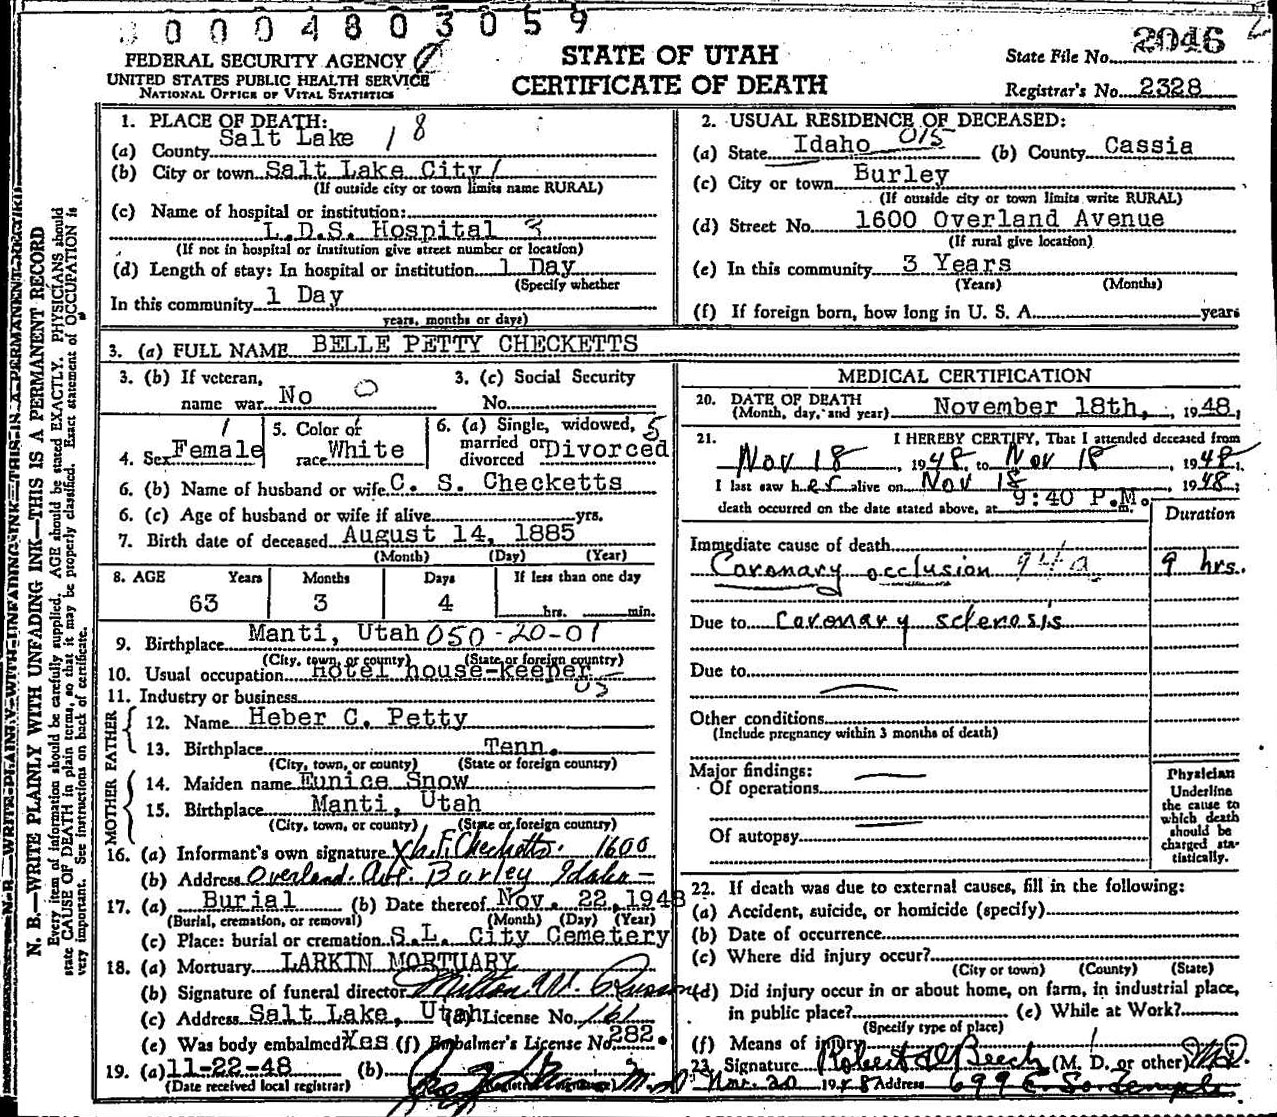 0004803059
FEDERAL SECURITY AGENCY
UNITED STATES PUBLIC HEALTH SERVICE
NATIONAL OFFICE OF VITAL STATISTICS
STATE OF UTAH
CERTIFICATE OF DEATH
State File No. 2046
Registrar's No. 2328
N. B.—WRITE PLAINLY WITH UNFADING INK—THIS IS A PERMANENT RECORD
Every item of information should be carefully supplied. AGE should be stated EXACTLY. PHYSICIANS should
state CAUSE OF DEATH in plain terms, so that it may be properly classified. Exact statement of OCCUPATION is
very important. See instructions on back of certificate.
1. PLACE OF DEATH:
(a) County Salt Lake 18
(b) City or town Salt Lake City 1
(If outside city or town limits name RURAL)
(c) Name of hospital or institution:
L.D.S. Hospital 3
(If not in hospital or institution give street number or location)
(d) Length of stay: In hospital or institution 1 Day
(Specify whether
In this community 1 Day
years, months or days)
2. USUAL RESIDENCE OF DECEASED:
(a) State Idaho 015 (b) County Cassia
(c) City or town Burley
(If outside city or town limits write RURAL)
(d) Street No. 1600 Overland Avenue
(If rural give location)
(e) In this community 3 Years
(Years) (Months)
(f) If foreign born, how long in U. S. A. years
3. (a) FULL NAME BELLE PETTY CHECKETTS
3. (b) If veteran,
name war No 0
3. (c) Social Security
No.
4. Sex Female 1
5. Color or
race White
6. (a) Single, widowed, 5
married or
divorced Divorced
6. (b) Name of husband or wife C. S. Checketts
6. (c) Age of husband or wife if alive yrs.
7. Birth date of deceased August 14, 1885
(Month) (Day) (Year)
8. AGE Years Months Days If less than one day
63 3 4 hrs. min.
9. Birthplace Manti, Utah 050-20-01
(City, town, or county) (State or foreign country)
10. Usual occupation Hotel house-keeper
11. Industry or business 05
FATHER
12. Name Heber C. Petty
13. Birthplace Tenn.
(City, town, or county) (State or foreign country)
MOTHER
14. Maiden name Eunice Snow
15. Birthplace Manti, Utah
(City, town, or county) (State or foreign country)
16. (a) Informant's own signature Checketts. 1600
(b) Address Overland Ave. Burley Idaho
17. (a) Burial (b) Date thereof Nov. 22, 1948
(Burial, cremation, or removal) (Month) (Day) (Year)
(c) Place: burial or cremation S.L. City Cemetery
18. (a) Mortuary LARKIN MORTUARY
(b) Signature of funeral director Milton W.
(c) Address Salt Lake, Utah (d) License No. 161
(e) Was body embalmed Yes (f) Embalmer's License No. 282.
19. (a) 11-22-48 (b)
(Date received local registrar)
MEDICAL CERTIFICATION
20. DATE OF DEATH
(Month, day, and year) November 18th, , 1948,
21. I HEREBY CERTIFY, That I attended deceased from
Nov 18, 1948, to Nov 18, 1948,
I last saw her alive on Nov 18, 1948;
death occurred on the date stated above, at 9:40 P.M. m.
Duration
Immediate cause of death
Coronary occlusion 94a 9 hrs.
Due to Coronary sclerosis
Due to
Other conditions
(Include pregnancy within 3 months of death)
Major findings:
Of operations
Of autopsy
Physician
Underline
the cause to
which death
should be
charged sta-
tistically.
22. If death was due to external causes, fill in the following:
(a) Accident, suicide, or homicide (specify)
(b) Date of occurrence
(c) Where did injury occur?
(City or town) (County) (State)
(d) Did injury occur in or about home, on farm, in industrial place,
in public place? (e) While at Work?
(Specify type of place)
(f) Means of injury
23. Signature Robert D Beech (M. D. or other) M.D.
Nov. 20 1948 Address 699 E. So. Temple